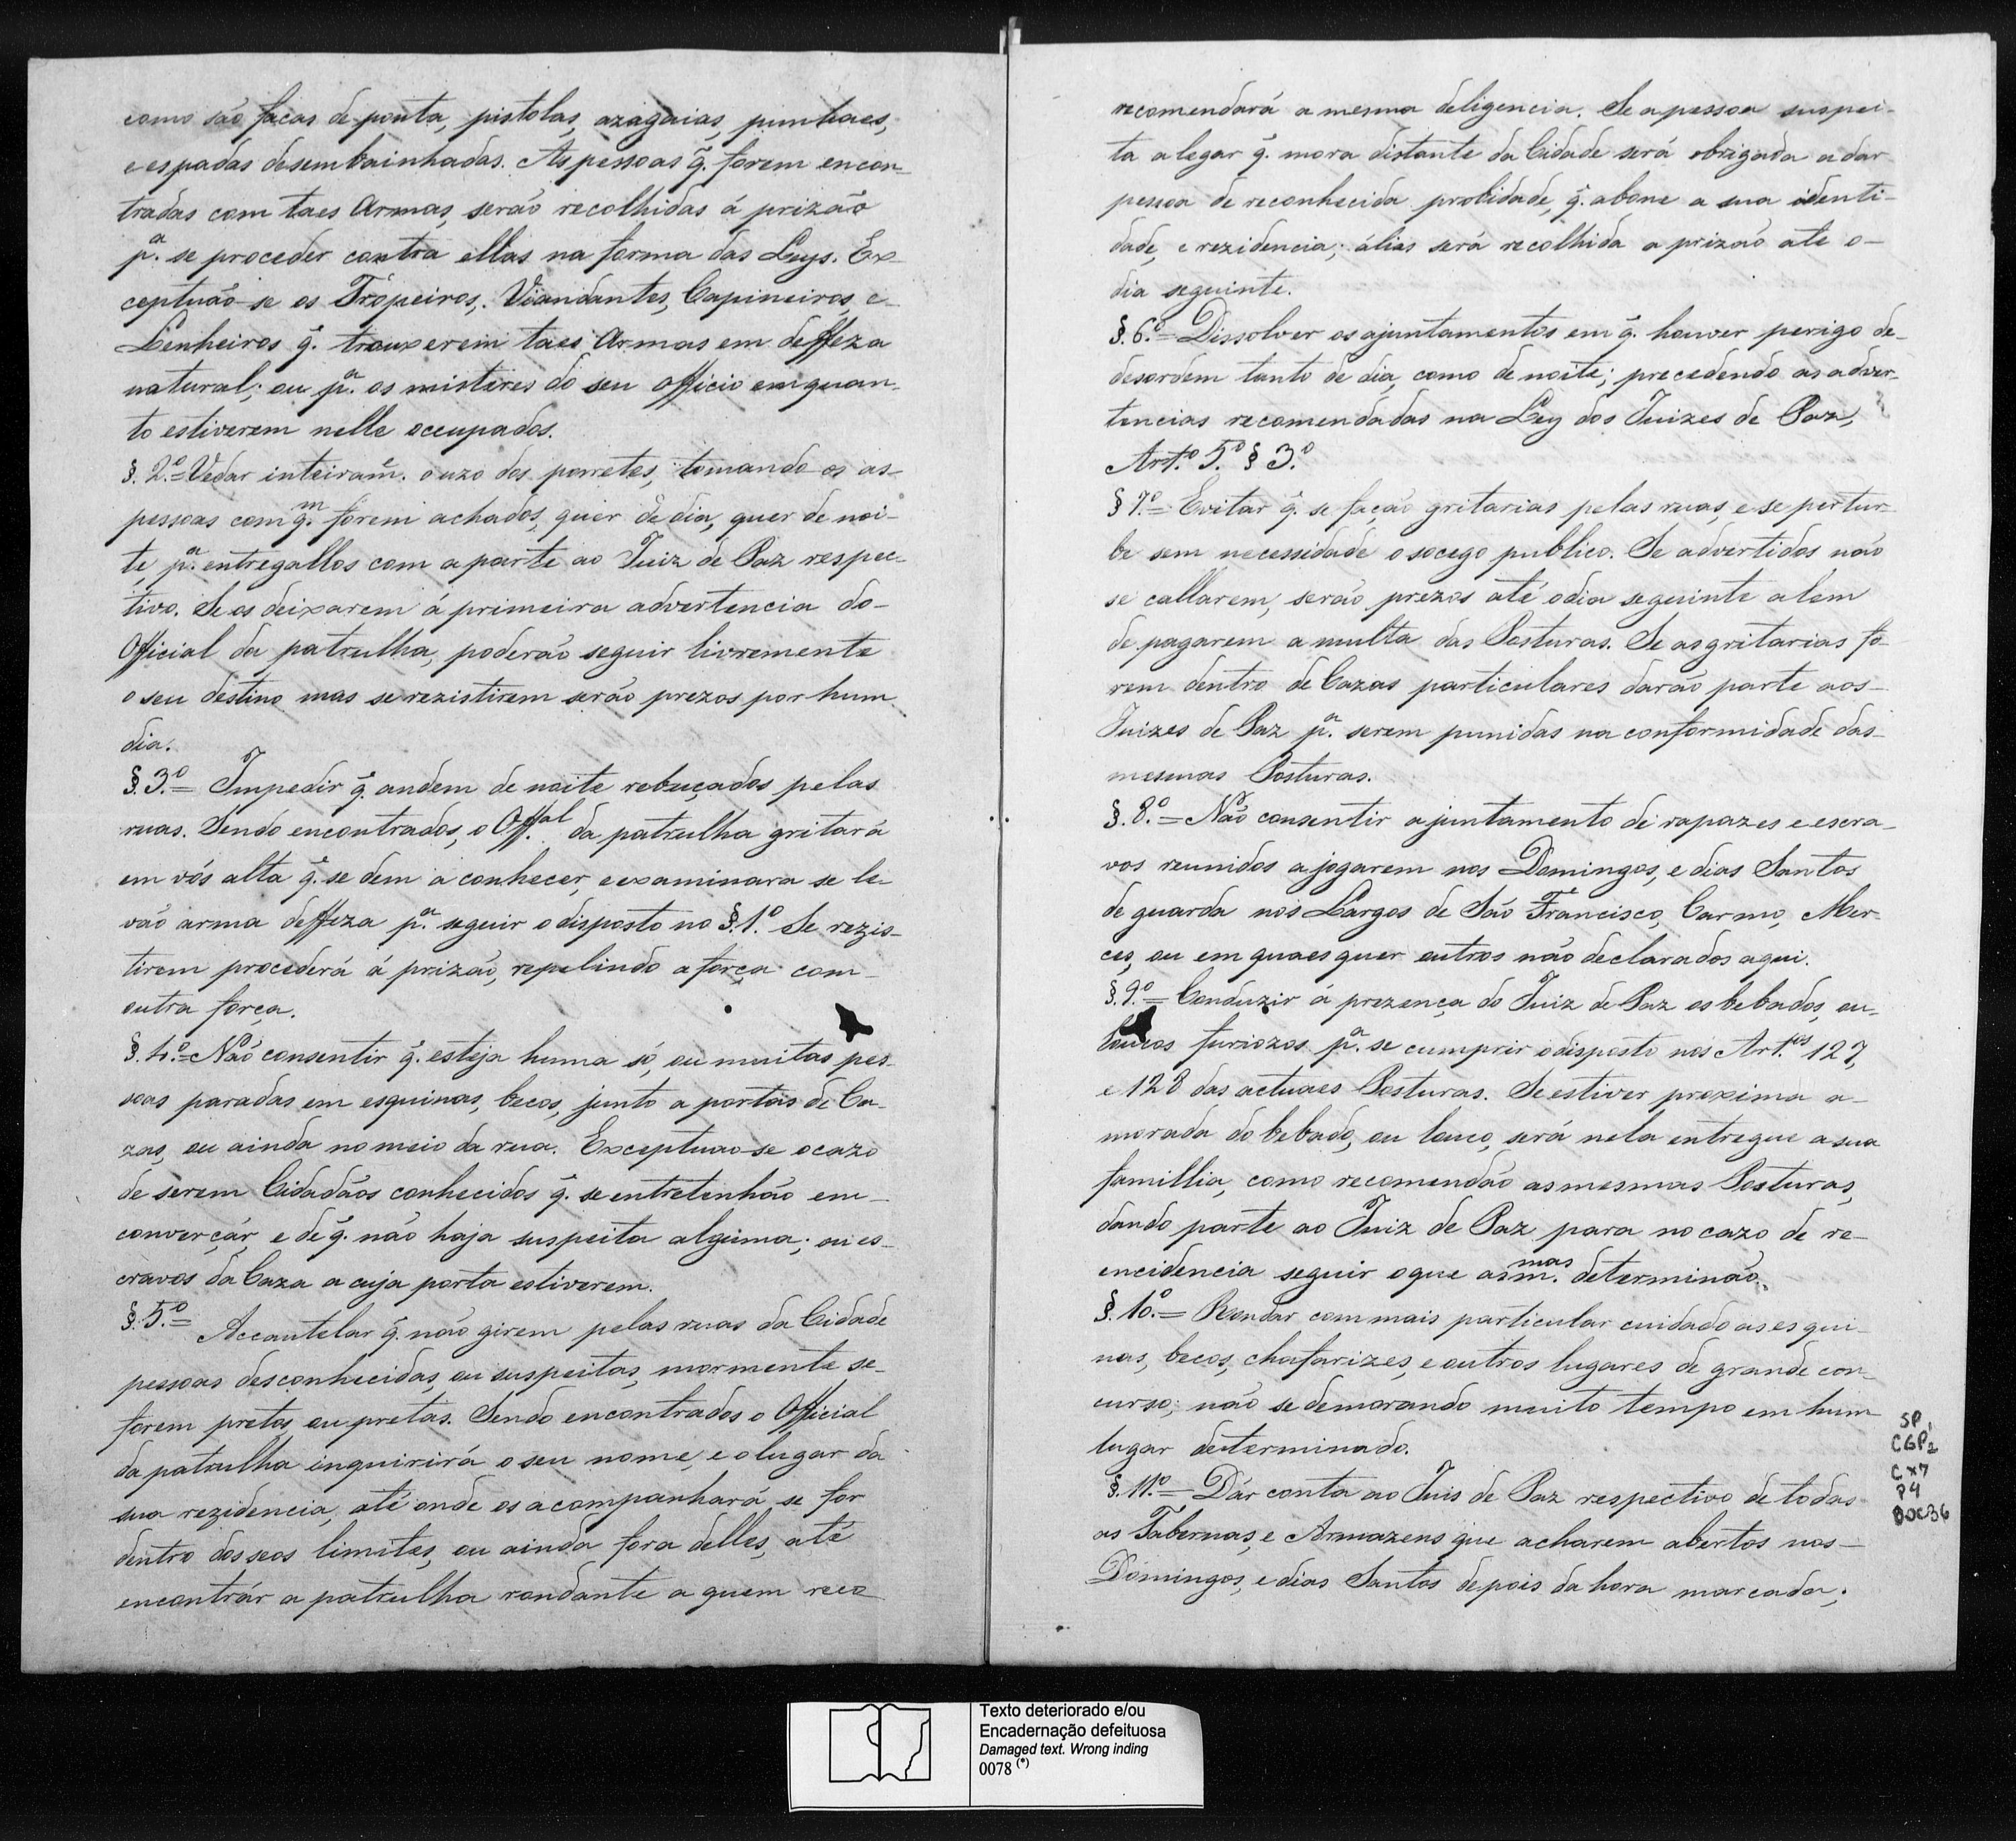 como são facas de ponta, pistolas, azagaias, punhaes,
e espadas desembainhadas. As pessoas q̃. forem encon-
tradas com taes Armas, serão recolhidas á prizão
p.ª se proceder contra ellas na forma das Leys. Ex-
ceptuão-se os Tropeiros, Viandantes, Capineiros, e
Lenheiros q̃. trouxerem taes Armas em deffeza
natural; ou p.ª os misteres do seu officio emquan-
to estiverem nelle occupados.
§. 2.º= Vedar inteiram.e o uzo dos porretes, tomando os as-
pessoas com q.m forem achados, quer de dia, quer de noi-
te, p.ª entregallos com a parte ao Juiz de Paz respec-
tivo. Se os deixarem á primeira advertencia do-
Official da patrulha, poderão seguir livremente
o seu destino mas se rezistirem serão prezos por hum
dia.
§. 3.º= Impedir q̃. andem de noite rebuçados pelas
ruas. Sendo encontrados, o Off.al da patrulha gritará
em vós alta q̃. se dem a conhecer, e examinara se le-
vão arma deffeza p.ª seguir o disposto no §. 1.º Se rezis-
tirem procederá á prizão, repelindo a força com-
outra força.
§. 4.º= Não consentir q̃. esteja huma só, ou muitas pes-
soas paradas em esquinas, becos, junto a portas de Ca-
zas, ou ainda no meio da rua. Exceptuao-se o cazo
de serem Cidadãos conhecidos q̃. se entretenhão em-
converçár, e de q̃. não haja suspeita alguma; ou es-
cravos da Caza a cuja porta estiverem.
§. 5.º= Accautelar q̃. não girem pelas ruas da Cidade
pessoas desconhecidas, ou suspeitas, mormente se-
forem pretos, ou pretas. Sendo encontrados o Official
da patrulha inquirirá o seu nome, e o lugar da
sua rezidencia, até onde os acompanhará, se for
dentro dos seos limites, ou ainda fora delles, até
encontrár a patrulha rondante a quem reco
recomendará a mesma deligencia. Se a pessoa suspei-
ta alegar q̃. mora distante da Cidade será obrigada a dar
pessoa de reconhecida probidade, q̃. abone a sua identi-
dade, e rezidencia; álias será recolhida a prizão até o-
dia seguinte.
§. 6.º= Dissolver os ajuntamentos em q̃. houver perigo de-
desordem tanto de dia, como de noite; precedendo as adver-
tencias recomendadas na Ley dos Juizes de Paz,
Art.º 5.º § 3.º
§ 7.º= Evitar q̃. se fação gritarias pelas ruas, e se pertur-
be sem necessidade o socego publico. Se advertidos não
se callarem, serão prezos até o dia seguinte alem
de pagarem a multa das Posturas. Se as gritarias fo-
rem dentro de Cazas particulares darão parte aos-
Juizes de Paz p.ª serem punidas na conformidade das-
mesmas Posturas.
§. 8.º= Não consentir ajuntamento de rapazes e escra-
vos reunidos a jogarem nos Domingos, e dias Santos
de guarda nos Largos de São Francisco, Carmo, Mer-
ces, ou em quaesquer outros não declarados aqui.
§. 9.º= Conduzir á prezença do Juiz de Paz os bebados, ou-
loucos furiozos p.ª se cumprir o disposto nos Art.os 127,
e 128 das actuaes Posturas. Se estiver proxima a-
morada do bebado, ou louco, será nela entregue a sua
famillia, como recomendão as mesmas Posturas,
dando parte ao Juiz de Paz para no cazo de re-
encidencia seguir o que as m.mas determinão.
§. 10.º= Rondar com mais particular cuidado as esqui-
nas, becos, chafarizes, e outros lugares de grande con-
curso; não se demorando muito tempo em hum
lugar determinado.
§. 11.º= Dár conta ao Juis de Paz respectivo de todas
as Tabernas, e Armazens que acharem abertos nos-
Domingos, e dias Santos depois da hora marcada;
SP
CGP2
Cx7
P4
DOC36
Texto deteriorado e/ou
Encadernação defeituosa
Damaged text. Wrong inding
0078 (*)